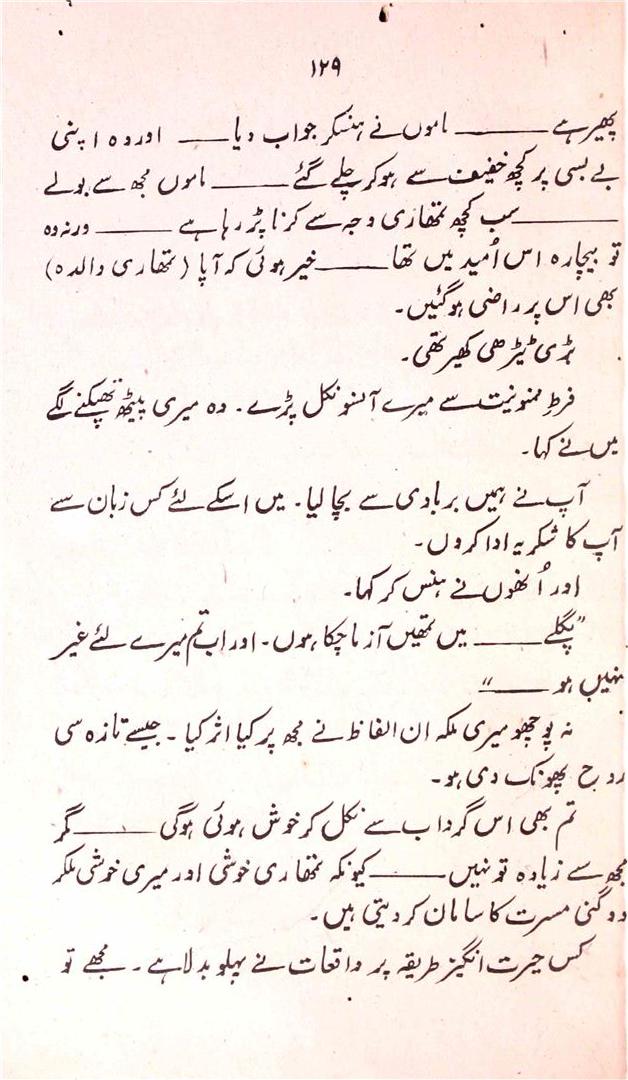 ۱۲۹
پھیر ہے ——— ماموں نے ہنسکر جواب دیا —— اور وہ اپنی
بے بسی پر کچھ خفیف سے ہوکر چلے گئے ——— ماموں مجھ سے بولے
——— سب کچھ تمھاری وجہ سے کرنا پڑ رہا ہے ——— ورنہ وہ
تو بیچارہ اس اُمید میں تھا ——— خیر ہوئی کہ آپا (تمھاری والدہ)
بھی اس پر راضی ہوگئیں۔
بڑی ٹیڑھی کھیر تھی۔
فرطِ ممنونیت سے میرے آنسو نکل پڑے۔ وہ میری پیٹھ تھپکنے لگے
میں نے کہا۔
آپ نے ہمیں بربادی سے بچا لیا۔ میں اسکے لئے کس زبان سے
آپ کا شکریہ ادا کروں۔
اور اُنھوں نے ہنس کر کہا۔
"پگلے ——— میں تمھیں آزما چکا ہوں۔ اور اب تم میرے لئے غیر
نہیں ہو ——"
نہ پوچھو میری ملکہ ان الفاظ نے مجھ پر کیا اثر کیا۔ جیسے تازہ سی
روح پھونک دی ہو۔
تم بھی اس گرداب سے نکل کر خوش ہوئی ہوگی ——— مگر
مجھ سے زیادہ تو نہیں ——— کیونکہ تمھاری خوشی اور میری خوشی ملکر
دوگنی مسرت کا سامان کر دیتی ہیں۔
کس حیرت انگیز طریقہ پر واقعات نے پہلو بدلا ہے۔ مجھے تو